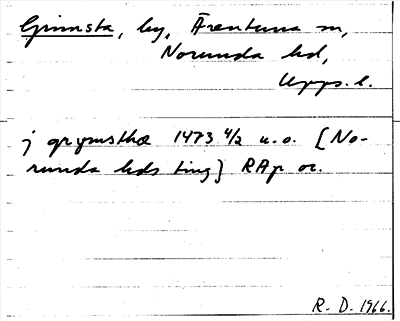 Grimsta, by, Ärentuna sn,
Norunda hd,
Upps. l.
j grymsthæ 1473 4/2 u.o. [No-
runda hds ting] RAp or.
R. D. 1966.